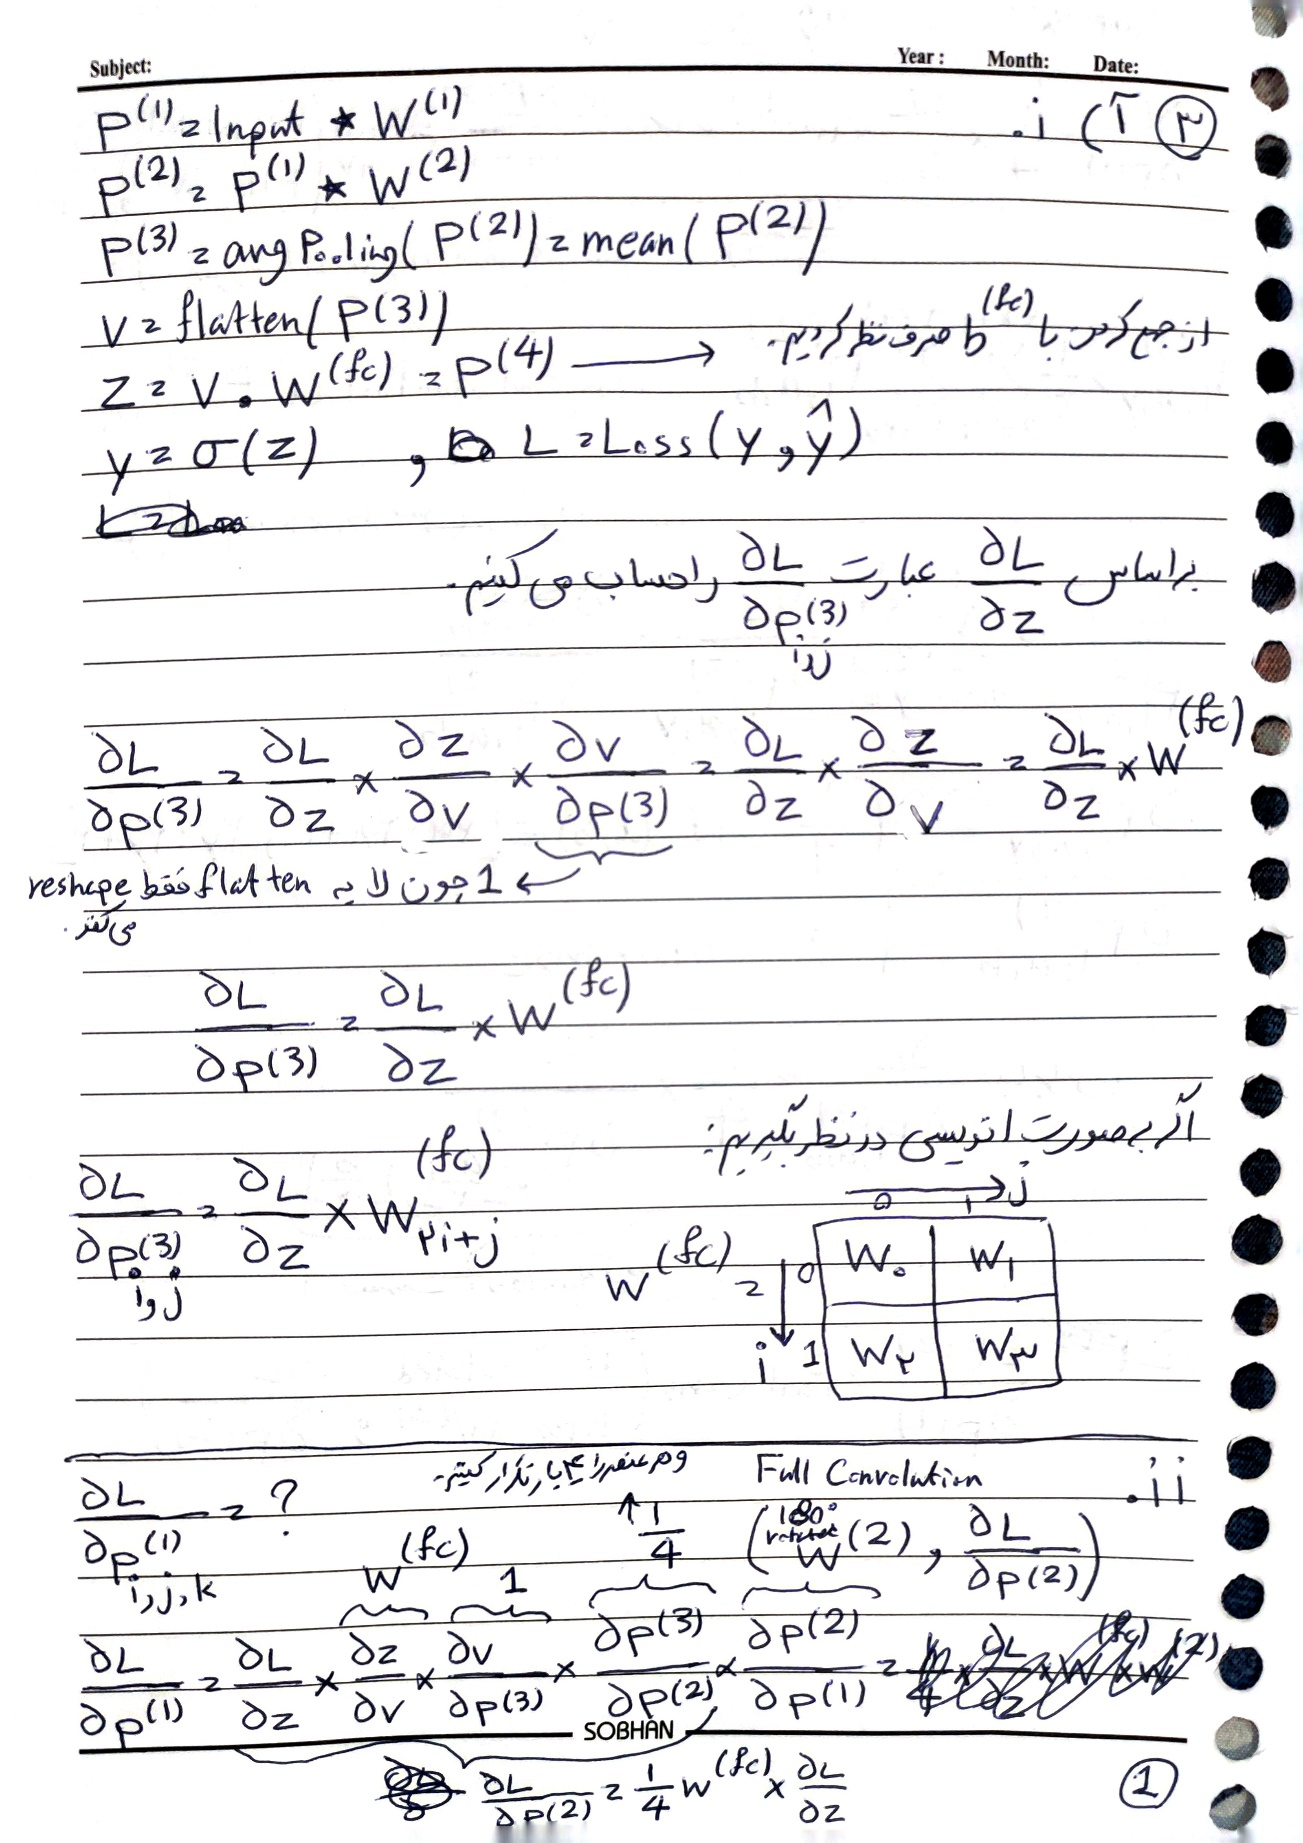 Subject: Year: Month: Date:
۳ آ) i.
P^(1) = Input ★ W^(1)
P^(2) = P^(1) ★ W^(2)
P^(3) = avg Pooling(P^(2)) = mean(P^(2))
V = flatten(P^(3))
Z = V . W^(fc) = P^(4) → از جمع کردن با b^(fc) صرف نظر کردیم.
y = σ(z) , L = Loss(y, ŷ)
بر اساس ∂L/∂z عبارت ∂L/∂P^(3)_i,j را حساب می کنیم.
∂L/∂P^(3) = ∂L/∂z × ∂z/∂v × ∂v/∂P^(3) = ∂L/∂z × ∂z/∂v = ∂L/∂z × W^(fc)
1 چون لایه flatten فقط reshape
می کند.
∂L/∂P^(3) = ∂L/∂z × W^(fc)
اگر به صورت اندیسی در نظر بگیریم:
∂L/∂P^(3)_i,j = ∂L/∂z × W^(fc)_۲i+j
j → 0 1
W^(fc) = i ↓ 0 W₀ W₁
1 W۲ W۳
ii.
∂L/∂P^(1)_i,j,k = ?
و هر عنصر را ۴ بار تکرار کنیم. ↑ 1/4
W^(fc) 1
Full Convolution
(180° rotated W^(2), ∂L/∂P^(2))
∂L/∂P^(1) = ∂L/∂z × ∂z/∂v × ∂v/∂P^(3) × ∂P^(3)/∂P^(2) × ∂P^(2)/∂P^(1) =
SOBHAN
∂L/∂P(2) = 1/4 W^(fc) × ∂L/∂z
1